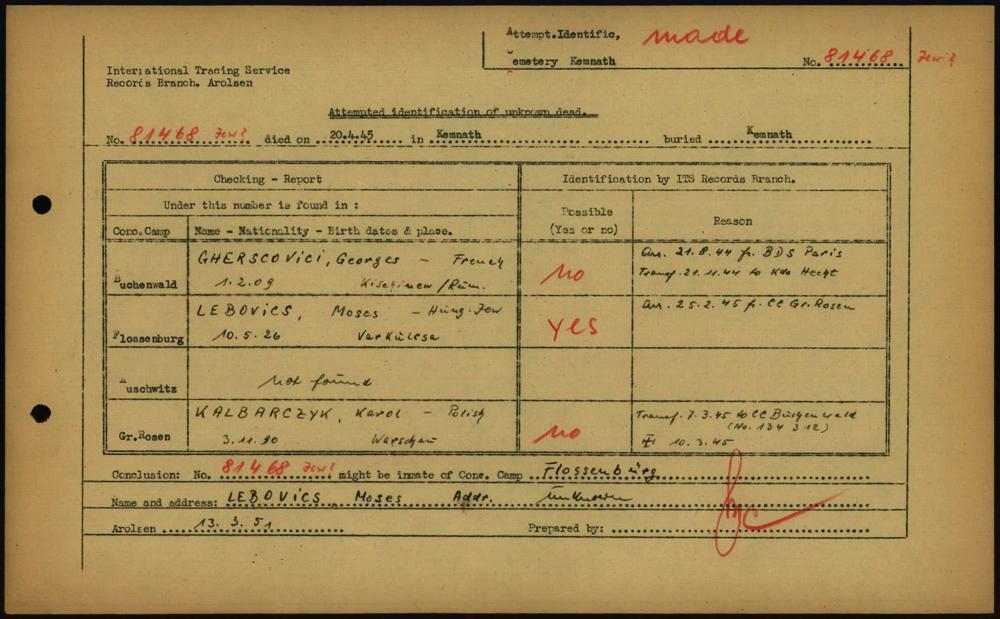 Attempt.Identific, made
Cemetery Kemnath No. 81468 Jew?
International Tracing Service
Records Branch. Arolsen
Attempted identification of unknown dead.
No. 81468 Jew? died on 20.4.45 in Kemnath buried Kemnath
Checking - Report Identification by ITS Records Branch.
Under this number is found in :
Conc.Camp Name - Nationality - Birth dates & place. Possible (Yes or no) Reason
Buchenwald GHERSCOVICI, Georges - French No Arr. 21.8.44 fr. BDS Paris
1.2.09 Kischinew/Rum. Transf. 21.11.44 to Kdo Hecht
Flossenburg LEBOVICS, Moses - Hung. Jew Yes Arr. 25.2.45 fr. CC Gr. Rosen
10.5.26 Varkulcsa
Auschwitz not found
Gr.Rosen KALBARCZYK, Karol - Polish No Transf. 7.3.45 to CC Buchenwald
3.11.90 Warschau (No. 134312)
10.3.45
Conclusion: No. 81468 Jew? might be inmate of Conc. Camp Flossenbürg
Name and address: LEBOVICS, Moses Addr. unknown
Arolsen 13.3.51 Prepared by: